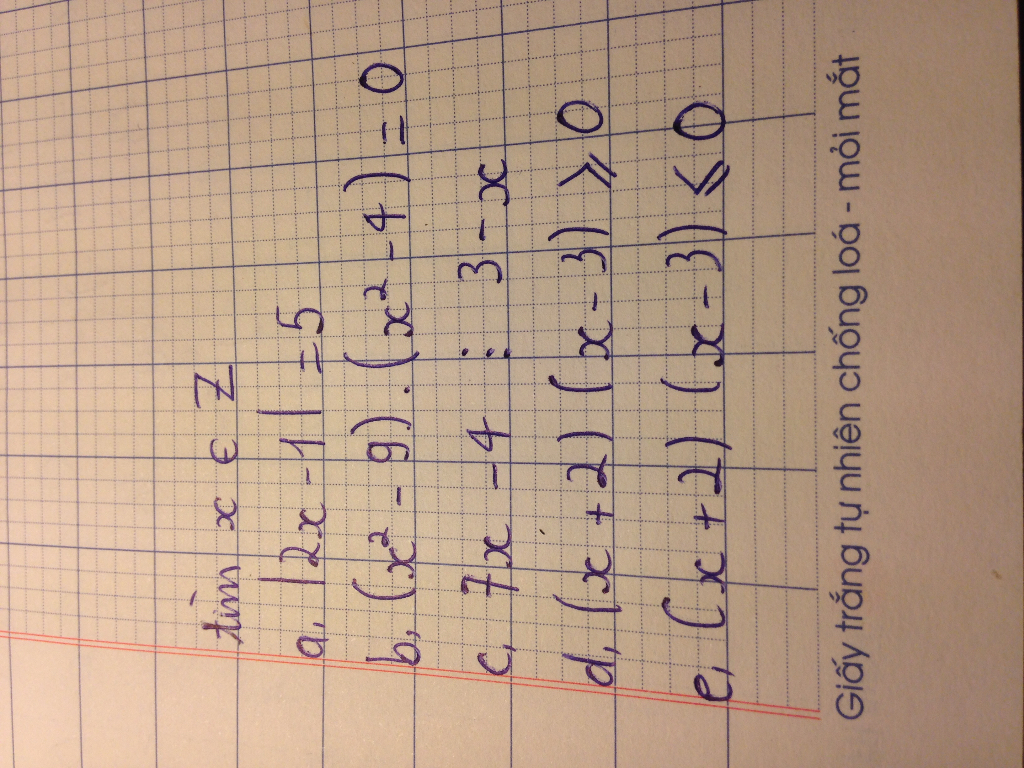 tìm x ∈ Z
a, |2x - 1| = 5
b, (x² - 9). (x² - 4) = 0
c, 7x - 4 ⋮ 3 - x
d, (x + 2) (x - 3) ⩾ 0
e, (x + 2) (x - 3) ⩽ 0
Giấy trắng tự nhiên chống loá - mỏi mắt